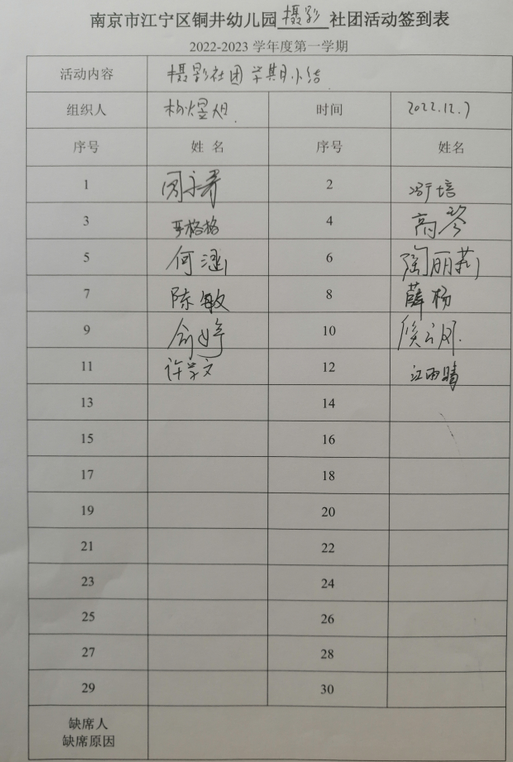 南京市江宁区铜井幼儿园 摄影 社团活动签到表
2022-2023 学年度第一学期
活动内容 摄影社团学期小结
组织人 时间 2022.12.7
序号 姓名 序号 姓名
1 2 培
3 格格 4 高琴
5 何涵 6 陶丽莉
7 陈敏 8 薛杨
9 俞婷 10
11 许学文 12 江雨晴
13 14
15 16
17 18
19 20
21 22
23 24
25 26
27 28
29 30
缺席人
缺席原因